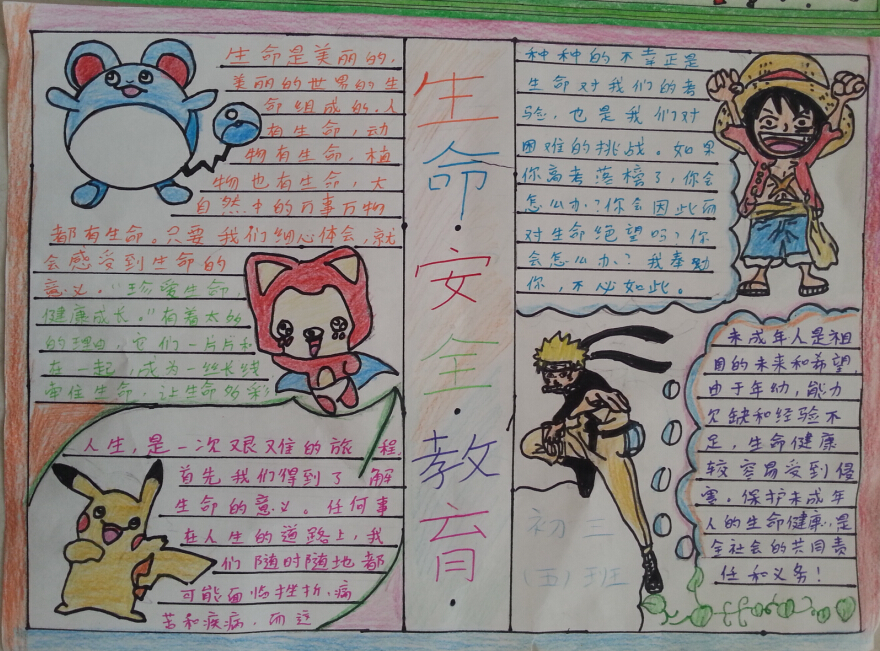 生命是美丽的，
美丽的世界的生
命组成的.人
有生命，动
物有生命，植
物也有生命，大
自然中的万事万物
都有生命。只要我们细心体会，就
会感受到生命的
意义。"珍爱生命，
健康成长。"有着太多
的理由，它们一片片
在一起，成为一丝长线
牵住生命，让生命
人生，是一次艰难的旅程，
首先我们得到了解
生命的意义。任何事
在人生的道路上，我
们随时随地都
可能面临挫折、病
苦和疾病，而这
生命·安全·教育·
种种的不幸正是
生命对我们的考
验，也是我们对
困难的挑战。如果
你高考落榜了，你会
怎么办？你会因此而
对生命绝望吗？你
会怎么办？我奉劝
你，不必如此。
初三
(五)班
未成年人是祖
国的未来和希望，
由于年幼，能力
欠缺和经验不
足，生命健康
较容易受到侵
害。保护未成年
人的生命健康.是
全社会的共同责
任和义务！